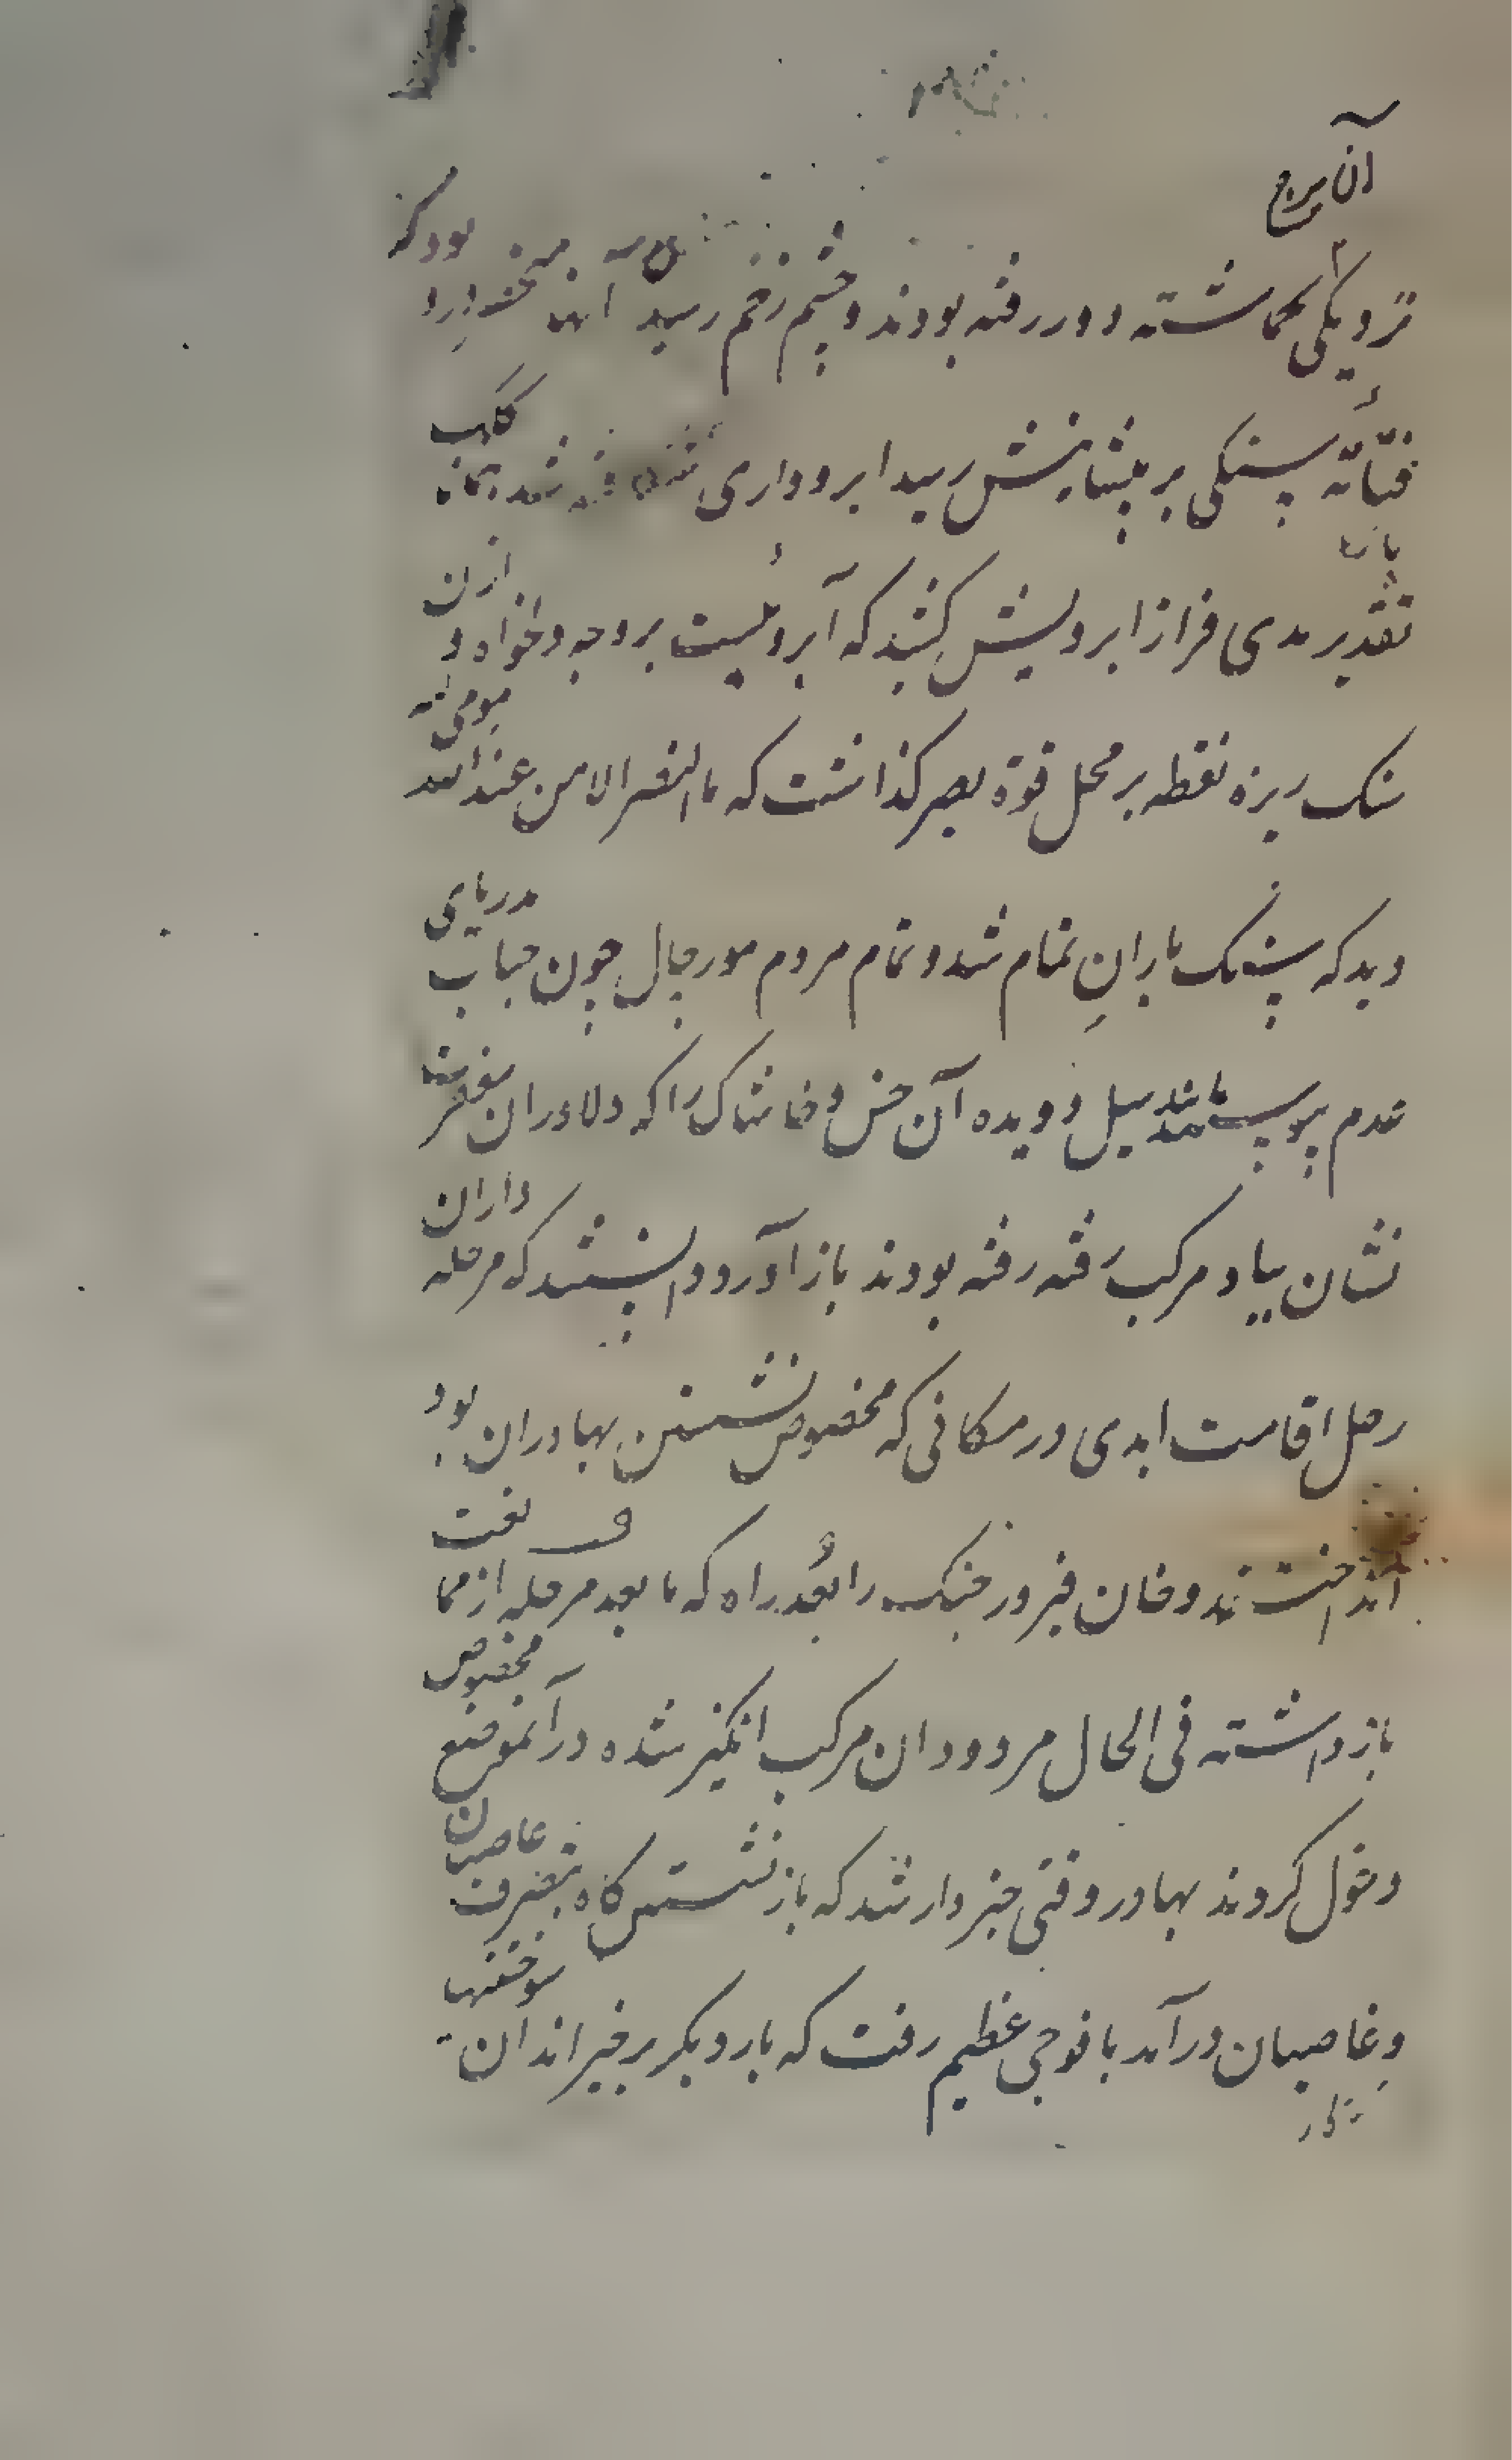 آن برج
نزدیکی گماشته دور رفته بودند و چشم زخم رسید بود که
سنگی بر پیشانیش رسید ابرو واری شد کلک
تقدیر مدی فراز ابرویش کشید که آبروئیست بر وجه دلخواه و ازان
سنک ریزه نقطه بر محل قوة بصر کذاشت که ما النصر الا من عند الله
دید که سنک باران تمام شد و تمام مردم مورچال چون حباب دریای
عدم پیوست مانند سیل دویده آن خس و خاشاک را که دلاوران
نشان بیاد مرکب رفته رفته بودند باز آورد دانستند که مرحله داران
رحل اقامت ابدی در مکانی که مخصوص نشستن بهادران بود
انداختند و خان فیروز جنک را بُعد راه که ما بعد مرحله از
باز داشته فی الحال مردودان مرکب انگیز شده در آنموضع مخصوص
دخول کردند بهادر وقتی خبردار شد که باز نشستن گاه بتصرف عاصیان
و غاصبان درآمد با فوجی عظیم رفت که بار دیکر برخیزاند آن سوختنیها